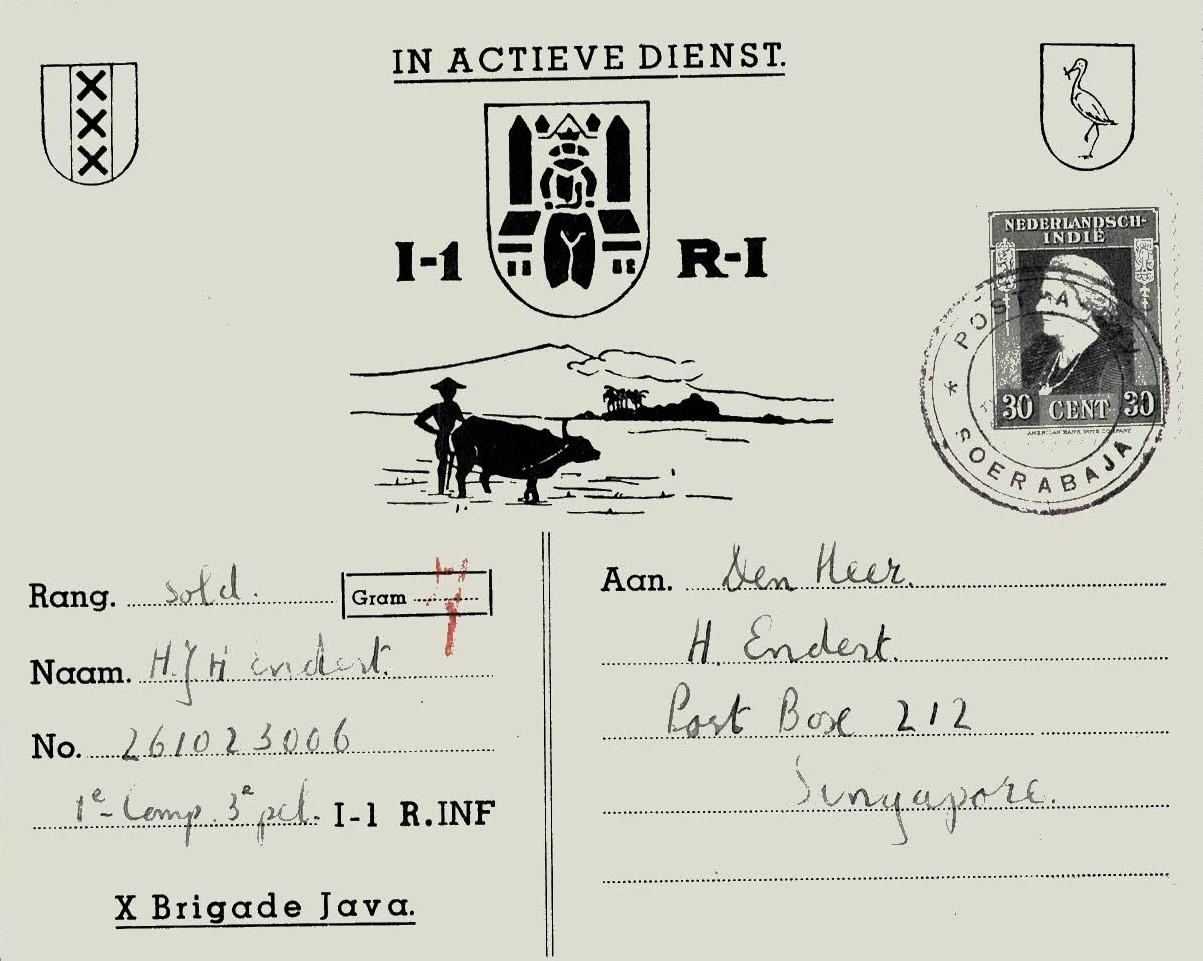 IN ACTIEVE DIENST.
I-1 R-I
NEDERLANDSCH-
INDIË
30 CENT 30
AMERICAN BANK NOTE COMPANY
* SOERABAJA
Rang. sold.
Gram 7
Naam. H.J H Endert.
No. 261023006
1e-Comp. 3e pel. I-1 R.INF
X Brigade Java.
Aan. Den Heer.
H. Endert.
Post Box 212
Singapore.